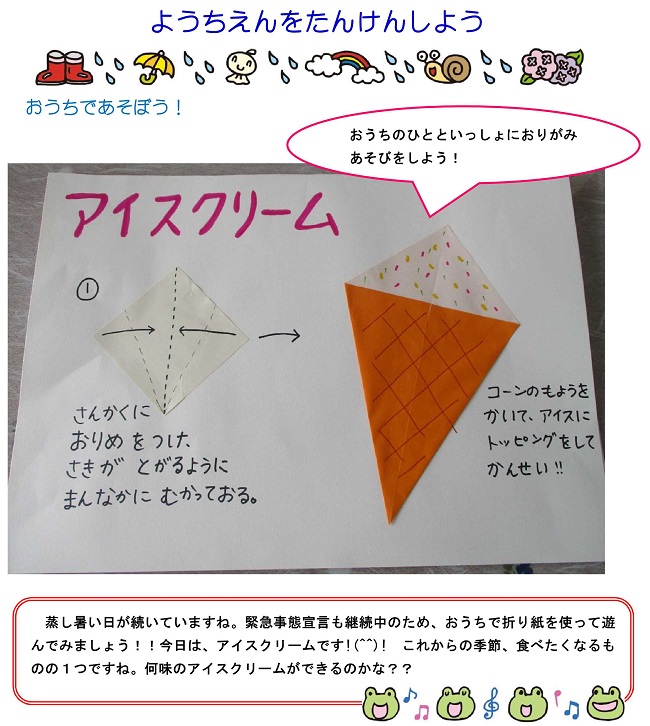 ようちえんをたんけんしよう
おうちであそぼう！
おうちのひとといっしょにおりがみ
あそびをしよう！
アイスクリーム
①
さんかくに
おりめをつけ、
さきが とがるように
まんなかに むかっておる。
コーンのもようを
かいて、アイスに
トッピングをして
かんせい!!
蒸し暑い日が続いていますね。緊急事態宣言も継続中のため、おうちで折り紙を使って遊
んでみましょう！！今日は、アイスクリームです!(^^)! これからの季節、食べたくなるも
のの１つですね。何味のアイスクリームができるのかな？？